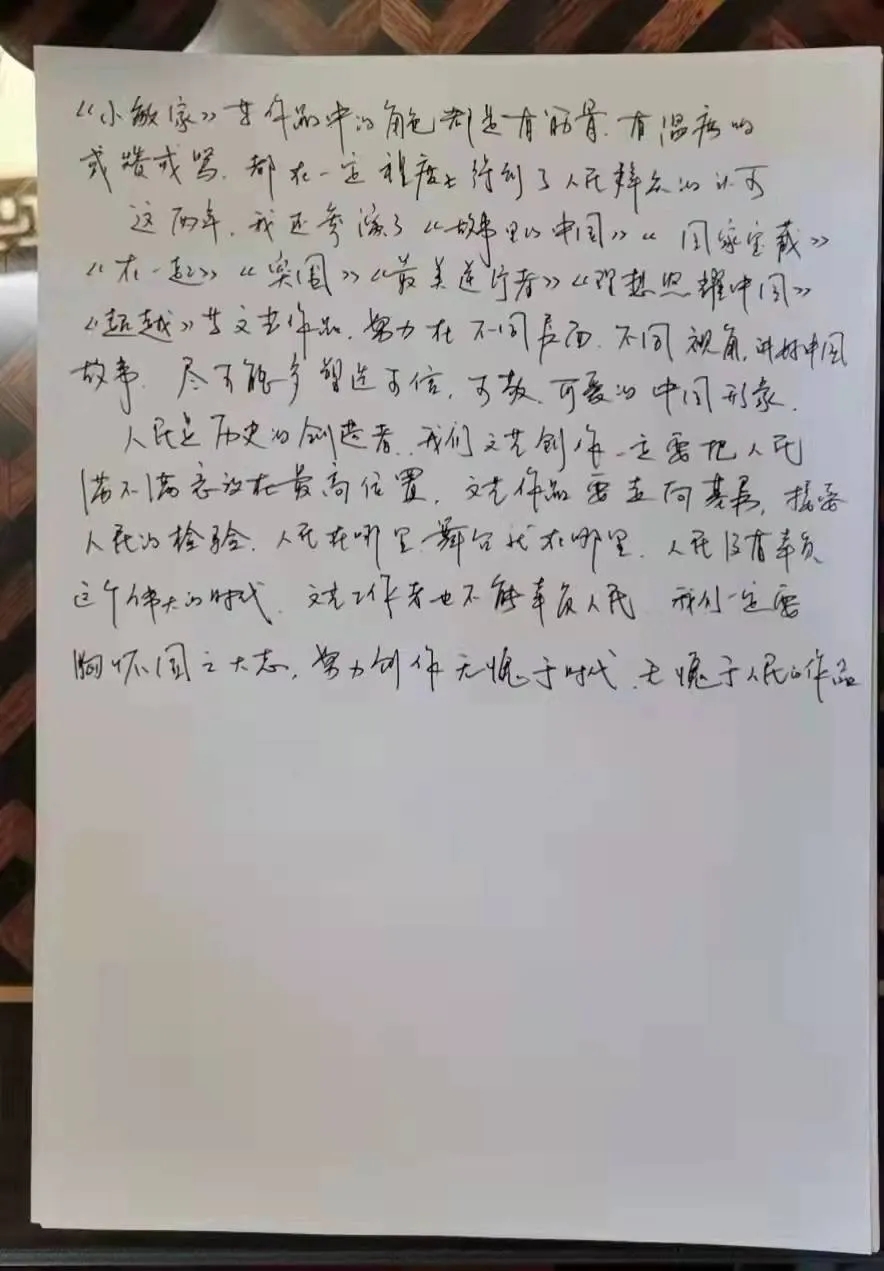 《小敏家》等作品中的角色都是有筋骨、有温度的
或赞或骂、都在一定程度上得到了人民群众的认可
这两年,我还参演了《故事里的中国》《国家宝藏》
《在一起》《突围》《最美逆行者》《理想照耀中国》
《超越》等文艺作品,努力在不同层面、不同视角,讲好中国
故事、尽可能多塑造可信,可敬、可爱的中国形象.
人民是历史的创造者,我们文艺创作一定要把人民
满不满意放在最高位置,文艺作品要走向基层,接受
人民的检验、人民在哪里舞台就在哪里、人民没有辜负
这个伟大的时代、文艺工作者也不能辜负人民 我们一定要
胸怀国之大志,努力创作无愧于时代、无愧于人民的作品